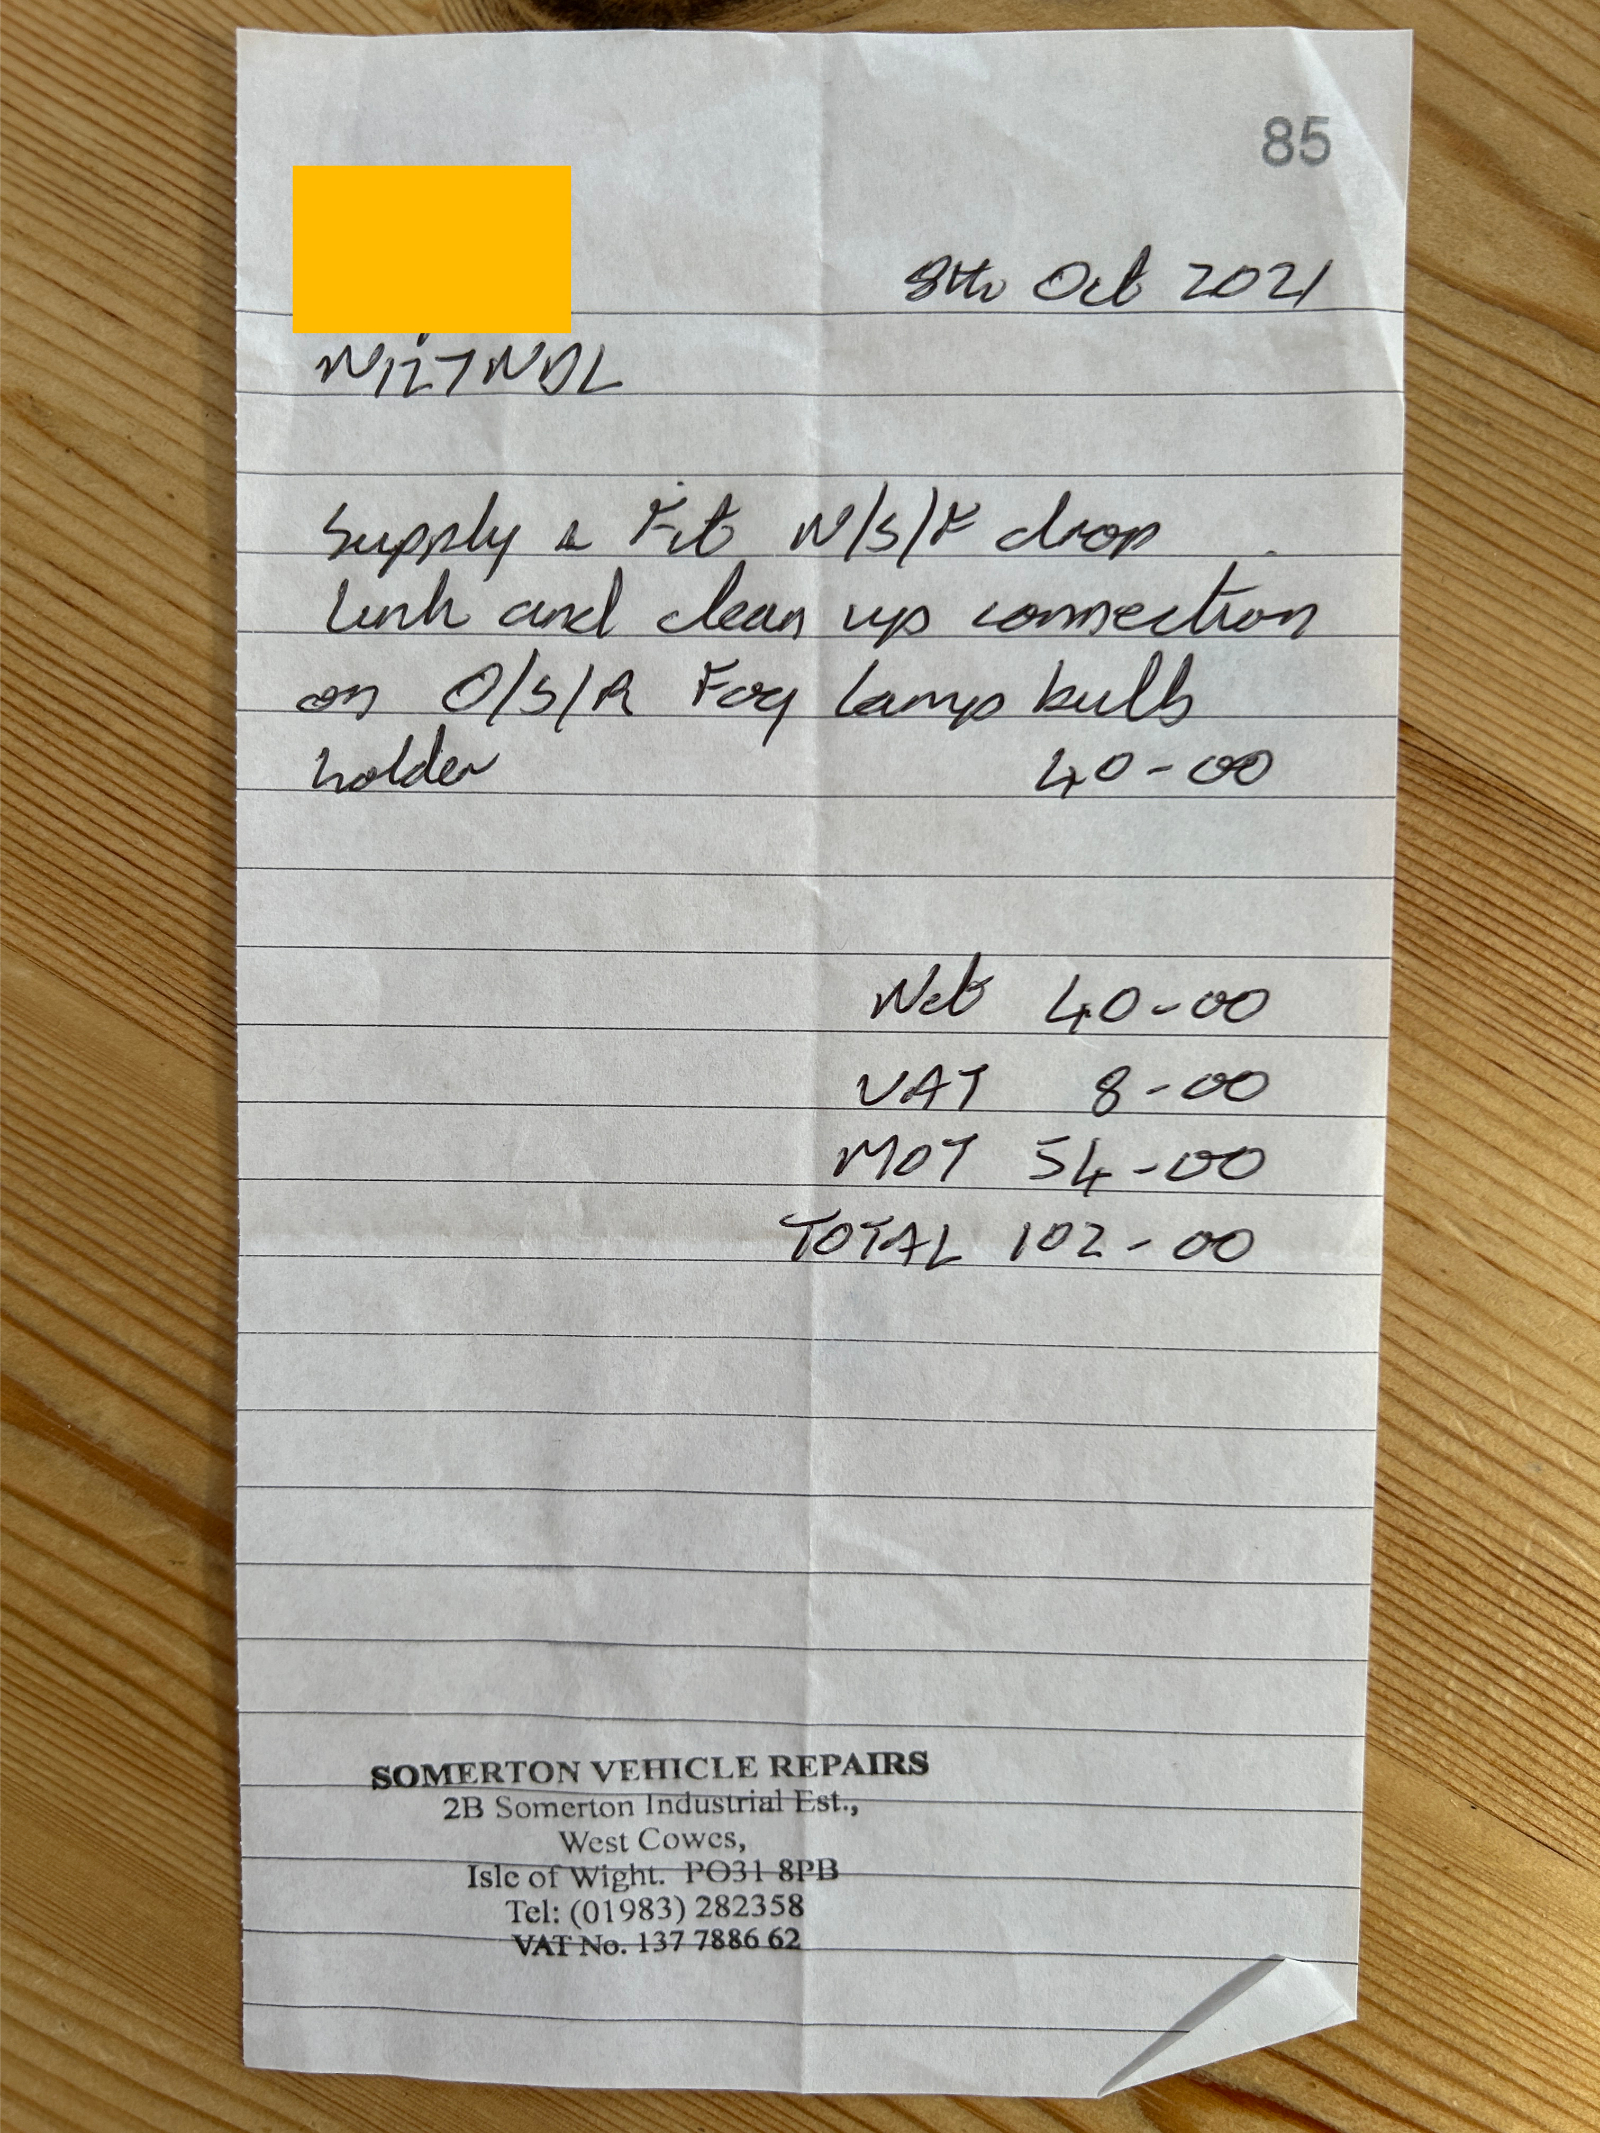 85
8th Oct 2021
N127NDL
Supply & Fit N/S/F drop
link and clean up connection
on O/S/R Fog lamp bulb
holder 40-00
Net 40-00
VAT 8-00
MOT 54-00
TOTAL 102-00
SOMERTON VEHICLE REPAIRS
2B Somerton Industrial Est.,
West Cowes,
Isle of Wight. PO31 8PB
Tel: (01983) 282358
VAT No. 137 7886 62